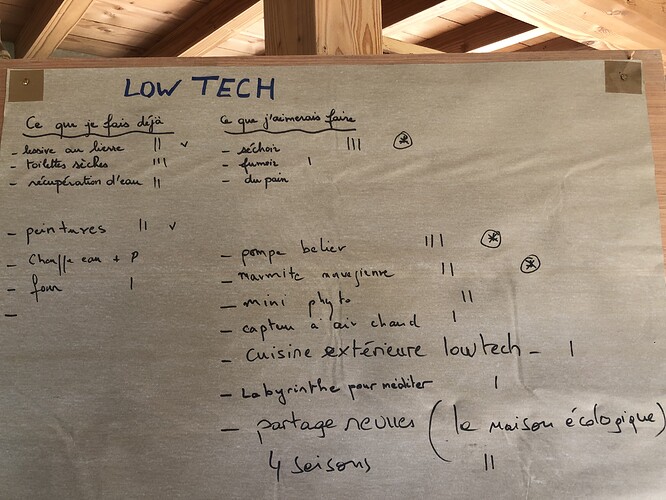 LOW TECH
Ce que je fais déjà
- lessive au lierre || v
- toilettes sèches |||
- récupération d'eau ||
- peintures || v
- Chauffe eau + P
- four |
-
Ce que j'aimerais faire
- séchoir |||
- fumoir |
- du pain
- pompe belier |||
- marmite norvegienne ||
- mini phyto ||
- capteur à air chaud |
- Cuisine extérieure lowtech - |
- Labyrinthe pour méditer |
- partage revues (la maison écologique)
4 saisons ||